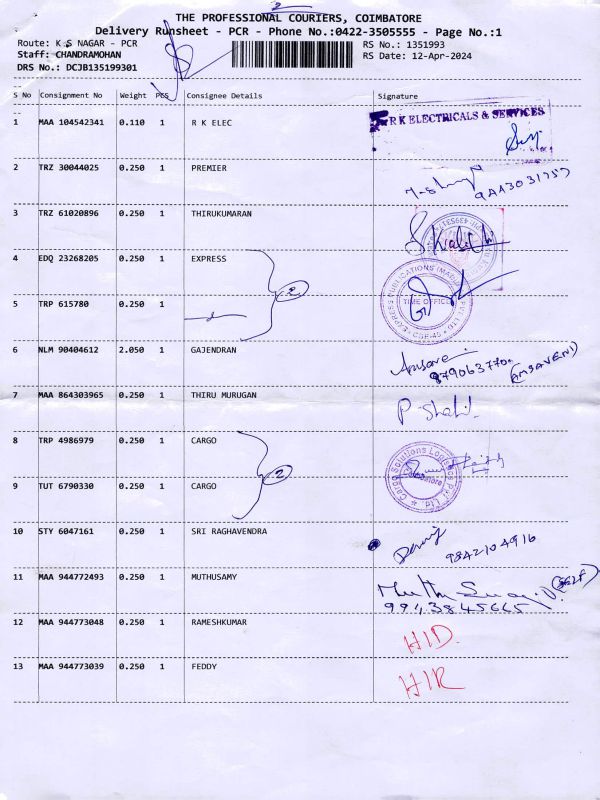 2
THE PROFESSIONAL COURIERS, COIMBATORE
Delivery Runsheet - PCR - Phone No.:0422-3505555 - Page No.:1
Route: K S NAGAR - PCR RS No.: 1351993
Staff: CHANDRAMOHAN RS Date: 12-Apr-2024
DRS No.: DCJB135199301
S No Consignment No Weight PCS Consignee Details Signature
1 MAA 104542341 0.110 1 R K ELEC R K ELECTRICALS & SERVICES
2 TRZ 30044025 0.250 1 PREMIER
3 TRZ 61020896 0.250 1 THIRUKUMARAN
4 EDQ 23268205 0.250 1 EXPRESS TIME OFFICE
2
5 TRP 615780 0.250 1
6 NLM 90404612 2.050 1 GAJENDRAN (AMSAVENI)
7 MAA 864303965 0.250 1 THIRU MURUGAN
8 TRP 4986979 0.250 1 CARGO Cargo Solutions Logistics Pvt. Ltd.
2
9 TUT 6790330 0.250 1 CARGO
10 STY 6047161 0.250 1 SRI RAGHAVENDRA 9842104916
11 MAA 944772493 0.250 1 MUTHUSAMY (SELF)
9943845665
12 MAA 944773048 0.250 1 RAMESHKUMAR HID
13 MAA 944773039 0.250 1 FEDDY HIR